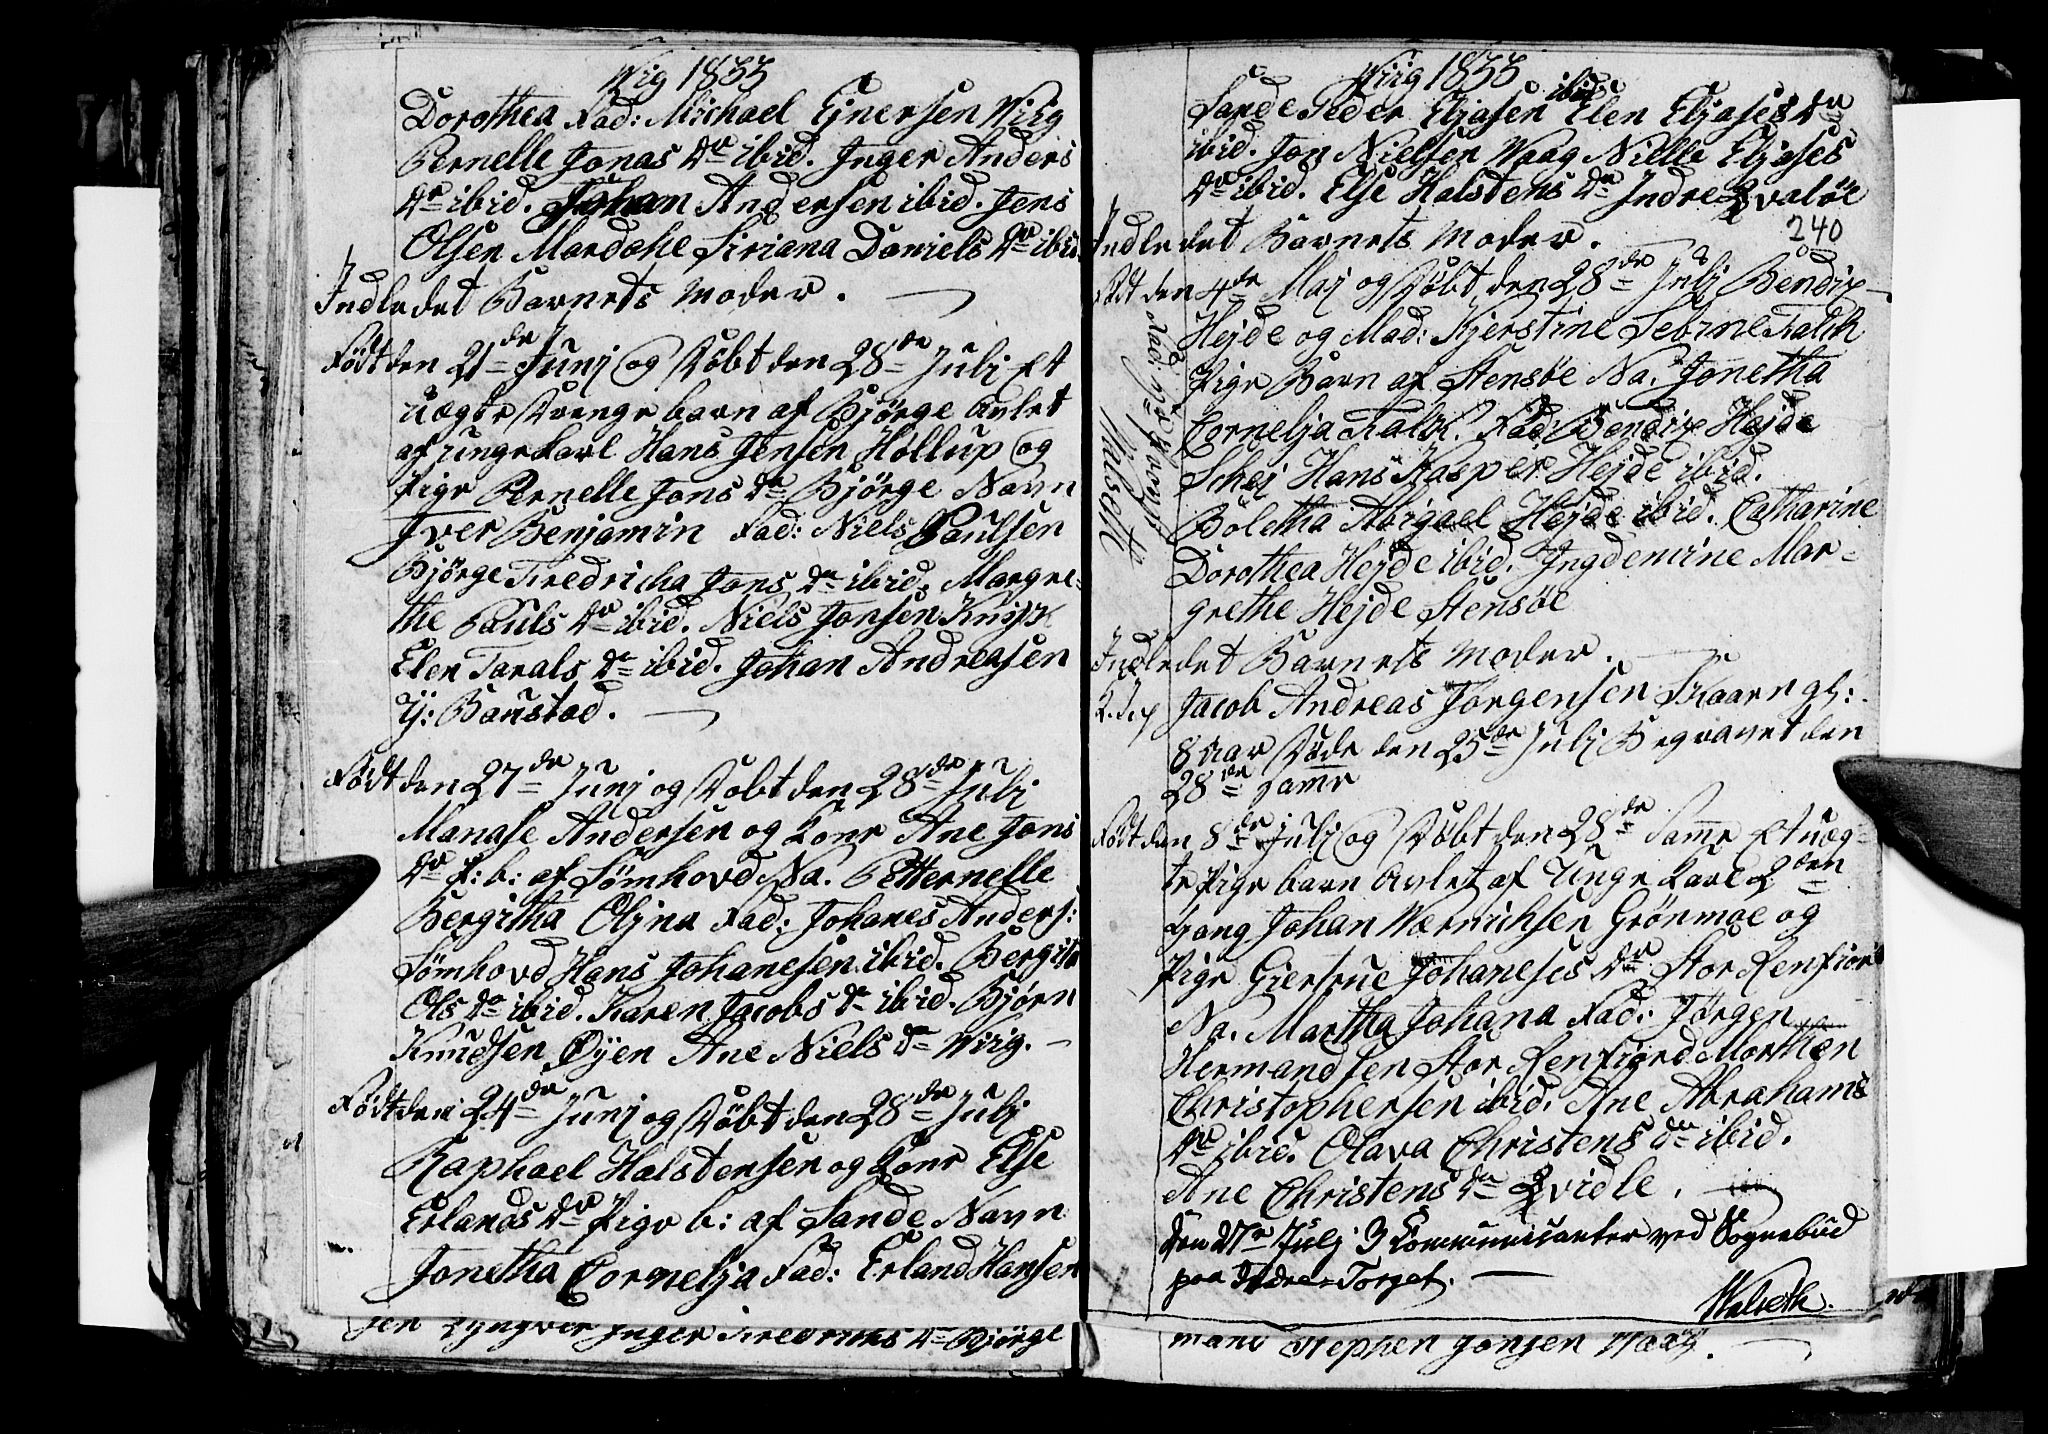 Wiig 1833
Dorothea Fad: Michael Ejnersen Wiig
Pernelle Jonas Dr ibid. Inger Anders
Dr ibid. Johan Andersen ibid. Jens
Olsen Mardahl Siriana Daniels Dr ibid.
Indledet Barnets Moder.
Født den 21de Junj og Døbt den 28de Julj Et
uægte Drenge barn af Bjørge Avlet
af unge karl Hans Jensen Hollup og
Pige Pernelle Jons Dr Bjørge Navn
Iver Benjamin Fad: Niels Paulsen
Bjørge Fredricha Jons Dr ibid. Margre-
the Pauls Dr ibid. Niels Jonsen
Elen Tarals Dr ibid. Johan Andreasen
Y: Baustad.
Født den 27de Junj og Døbt den 28de Julj
Manase Andersen og Kone Ane Jons
Dr P: b: af Sømhovd Na. Petternelle
Bergitha Oljna Fad: Johanes Anders:
Sømhovd Hans Johanesen ibid. Bergita
Ols Dr ibid. Karen Jacobs Dr ibid. Bjørn
Knudsen Øyen Ane Niels Dr Wiig.
Født den 24de Junj og Døbt den 28de Julj
Raphael Halstensen og Kone Else
Erlands Dr Pige b: af Sande Navn
Jonetha Cornelja Fad: Erland Hansen
sen Inger Fredriks Dr Bjørge
Wiig 1833
Sande Peder Eljasen ibid Elen Eljases Dr
ibid. Jon Nielsen Waag Nielle Eljases
Dr ibid. Else Halstens Dr Indre Qvaløe
240
Indledet Barnets Moder.
Født den 4de Maj og Døbt den 28de Julj Bendix
Hejde og Mad: Kjerstine Sebine Falch
Pige Barn af Stensøe Na. Jonetha
Cornelja Falck. Fad: Bendix Hejde
Schej Hans Kasper Hejde ibid.
Boletha Abigael Hejde ibid. Catharine
Dorothea Hejde ibid. Ingdemine Mar-
grethe Hejde Stensøe
Walseth
Indledet Barnets Moder.
Jacob Andreas Jørgensen Skaarn gl:
8 aar Døde den 25de Julj Begravet den
28de samme
Født den 8de Julj og Døbt den 28de Samme Et uæg-
te Pige barn Avlet af Unge karl 2den
Gang Johan Wærnichsen Grønmoe og
Pige Giertrue Johaneses Dr Stor Renfiord
Na. Martha Johana Fad: Jørgen
Hermandsen Stor Renfiord Morthen
Christophersen ibid. Ane Abrahams
Dr ibid. Olava Christens Dr ibid.
Ane Christens Dr Qvidle.
Den 27de Julj 3 Communicanter ved Sognebud
paa Indre-Torget.
Walseth.
mand Stephen Jonsen